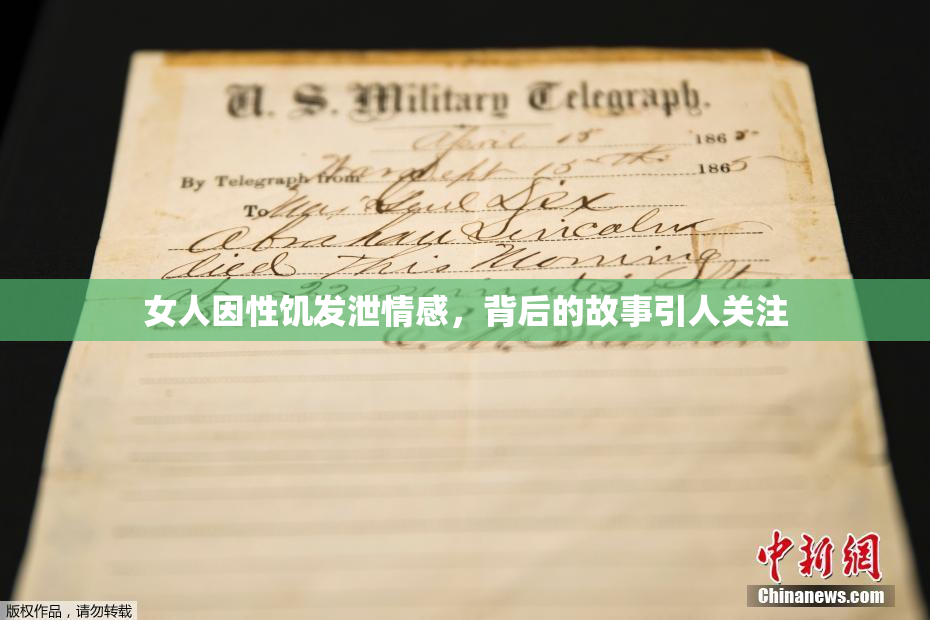 U. S. Military Telegraph.
April 15 1865
By Telegraph from War Dept 15th 1865
To Maj Genl Dix
Abraham Lincoln
died This Morning
at 22 minutes after
女人因性饥发泄情感，背后的故事引人关注
E. M. Stanton
中新网
Chinanews.com
版权作品，请勿转载